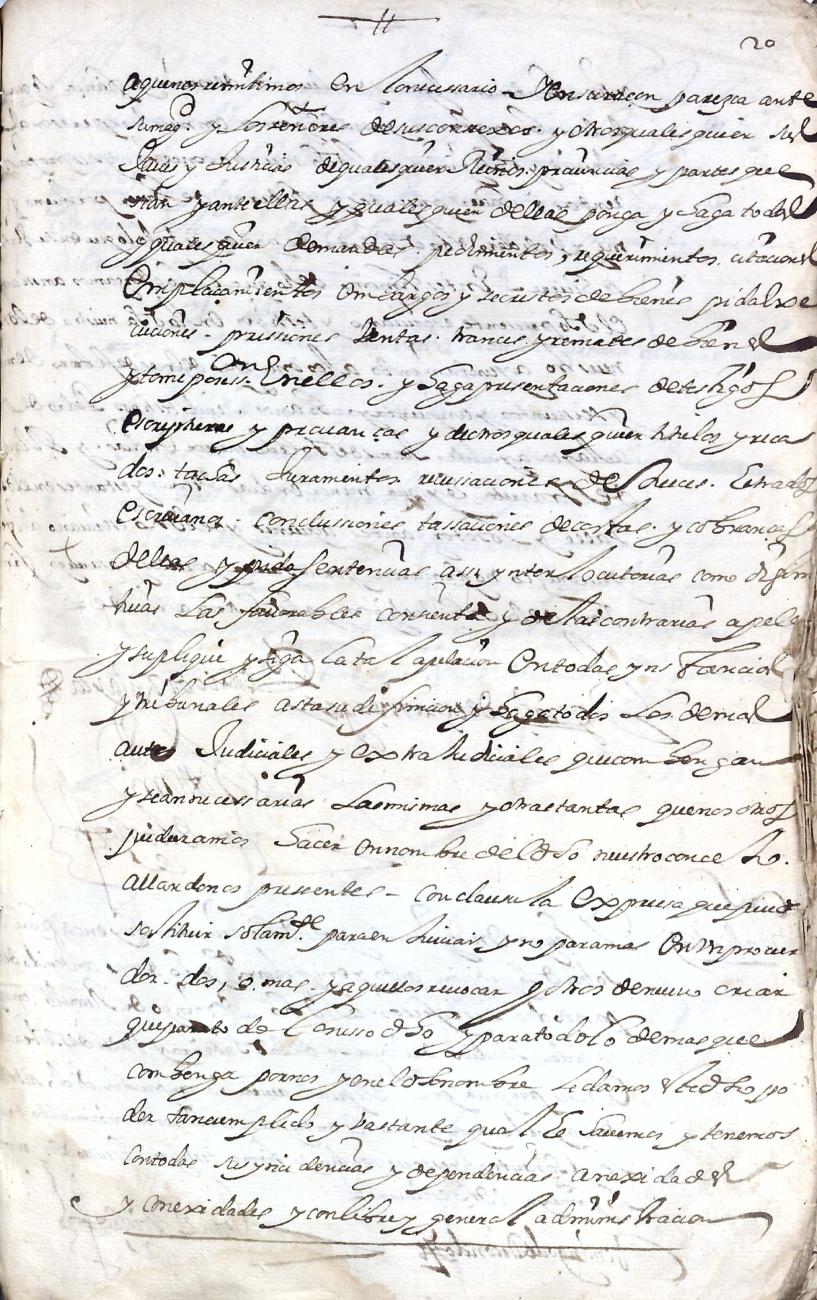 20
aquenos remitimos en lo necesario. Y en su raçon parezca ante
su magd. y los señores de sus consexos. y otros quales quier sus
Jueces y Justicias de quales quier Reinos. prouincias y partes que
sean y ante ellas y qualesquier dellas ponga y haga todas
y quales quier demandas. pedimientos, requerimientos. citaciones
emplaçamientos embargos y secrestos de bienes pida exe
cuciones. prissiones bentas. trances y remates de bienes
y tome posess.on en ellos. y haga presentaciones de testigos
escripturas y prouanças y de otros quales quier titulos y reca
dos. tachas Juramentos recussaciones de Jueces. Letrados
escriuanos. conclussiones tassaciones de costas. y cobranças
dellas y pida sentencias assi ynterlocutorias como difini
tiuas las fauorables consienta y de las contrarias apele
y suplique y siga la tal apelacion en todas ynstancias
y tribunales asta la difinicion y haga todos los demas
autos Judiciales y extra Judiciales que combengan
y sean necessarias las mismas y otras tantas que nosotros
pudieramos hacer en nombre del dho nuestro concejo.
allandonos presentes - con clausula expresa que pueda
sostituir solamte. para en Juicios y no para mas en un procura
dor. dos, o. mas. y aquellos reuocar y otros de nueuo criar
que para to do lo susso dho y para todo lo demas que
combenga por nos y en el dho nombre le damos este dho po
der tan cumplido y bastante qual le hauemos y tenemos
con todas sus yncidencias y dependencias anexidades
y conexidades y con libre y general administracion